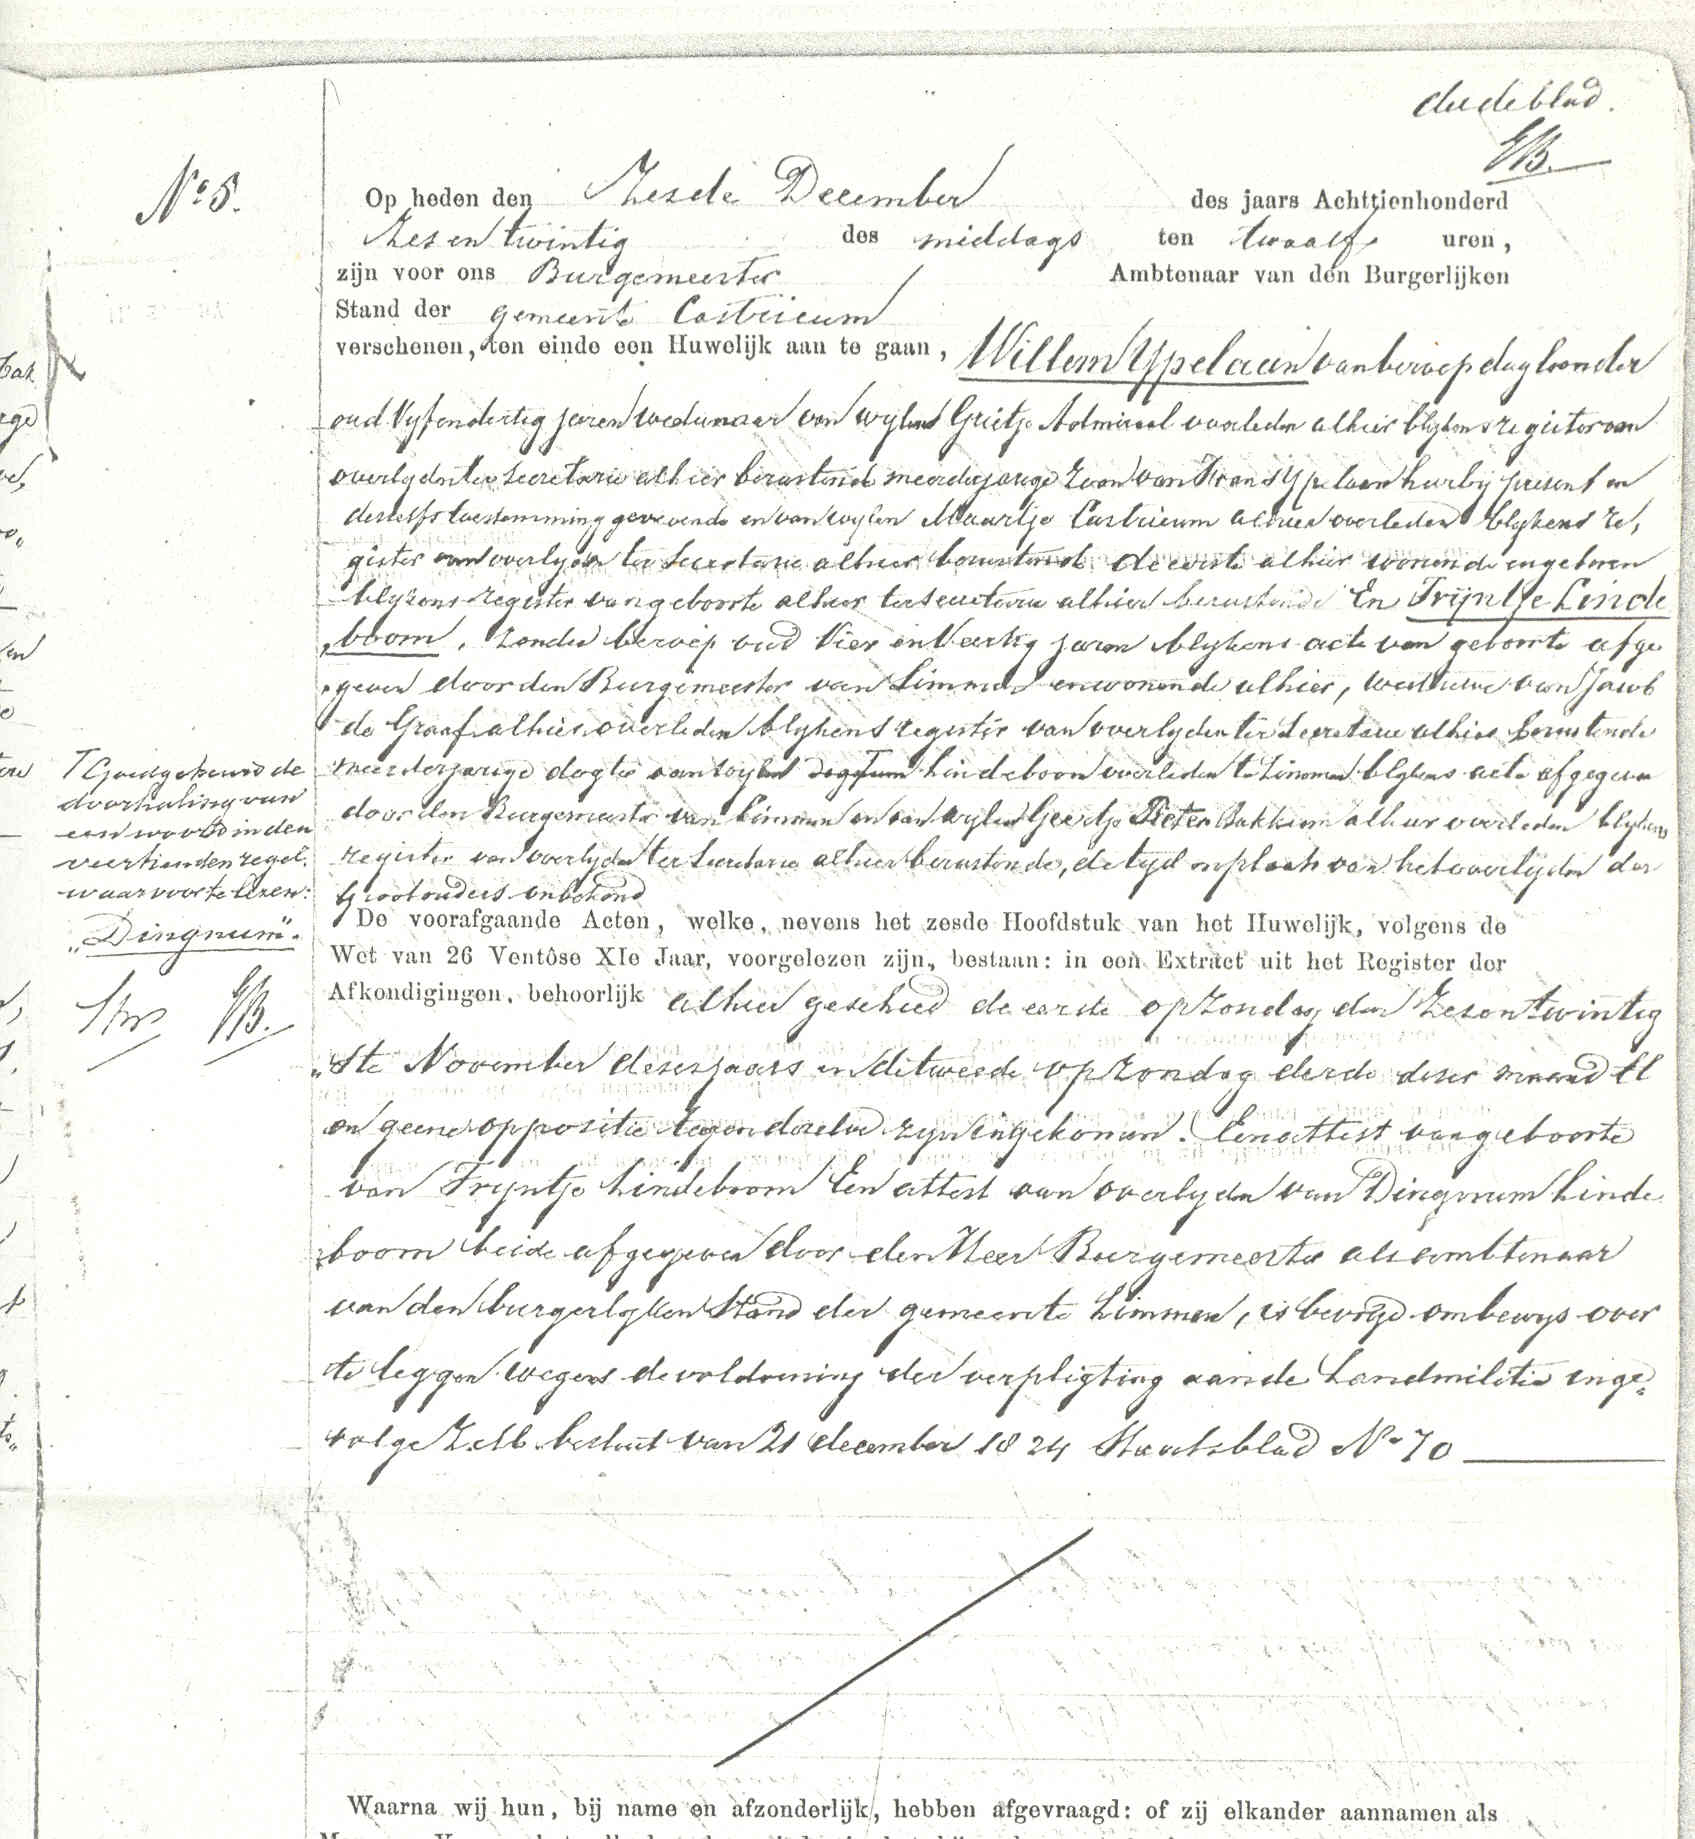 derdeblad.
No 5.
Op heden den Zesde December des jaars Achttienhonderd
Zes en twintig des middags ten twaalf uren,
zijn voor ons Burgemeester Ambtenaar van den Burgerlijken
Stand der gemeente Castricum
verschenen, ten einde een Huwelijk aan te gaan, Willem Ypelaan van beroep dagloonder
oud Vyfendertig jaren weduwnaar van wylen Grietje Admiraal overleden alhier blykens register van
overlyden ter secretarie alhier berustende meerderjarige zoon van Frans Ypelaan hierby present en
deszelfs toestemming gevende en van wylen Maartje Castricum alhier overleden blykens re,
gister van overlyden ter Secretarie alhier berustende de eerste alhier wonende en geboren
blykens register van geboorte alhier ter secretarie alhier berustende En Tryntje Linde
boom, zonder beroep oud Vier en Veertig jaren blykens acte van geboorte afge
geven door den Burgemeester van Limmen en wonende alhier, weduwe van Jacob
de Graaf alhier overleden blykens register van overlyden ter Secretarie alhier berustende
meerderjarige dogter van wylen Lindeboom overleden te Limmen blykens acte afgegeven
door den Burgemeester van Limmen en van wylen Geertje Pieter Bakkum alhier overleden blykens
register van overlyden ter Secretarie alhier berustende, de tyd en plaats van het overlyden der
Grootouders onbekend
Goedgekeurd de
doorhaling van
een woord in den
veertienden regel,
waar voor te lezen:
"Dingnum".
De voorafgaande Acten, welke, nevens het zesde Hoofdstuk van het Huwelijk, volgens de
Wet van 26 Ventôse XIe Jaar, voorgelezen zijn, bestaan: in een Extract uit het Register der
Afkondigingen, behoorlijk alhier geschied de eerste op zondag den Zesentwintig
"ste November dezes jaars en de tweede op zondag derde dezer maand
en geene oppositie tegen dezelve zyn ingekomen. Een attest van geboorte
van Tryntje Lindeboom Een attest van overlyden van Dingnum Linde
boom beide afgegeven door den Heer Burgemeester als ambtenaar
van den burgerlyken Stand der gemeente Limmen, is bevryd om bewys over
te leggen wegens de voldoening der verpligting aan de Landmilitie inge=
volge Z.M. besluit van 21 december 1824 Staatsblad No 70
Waarna wij hun, bij name en afzonderlijk, hebben afgevraagd: of zij elkander aannamen als